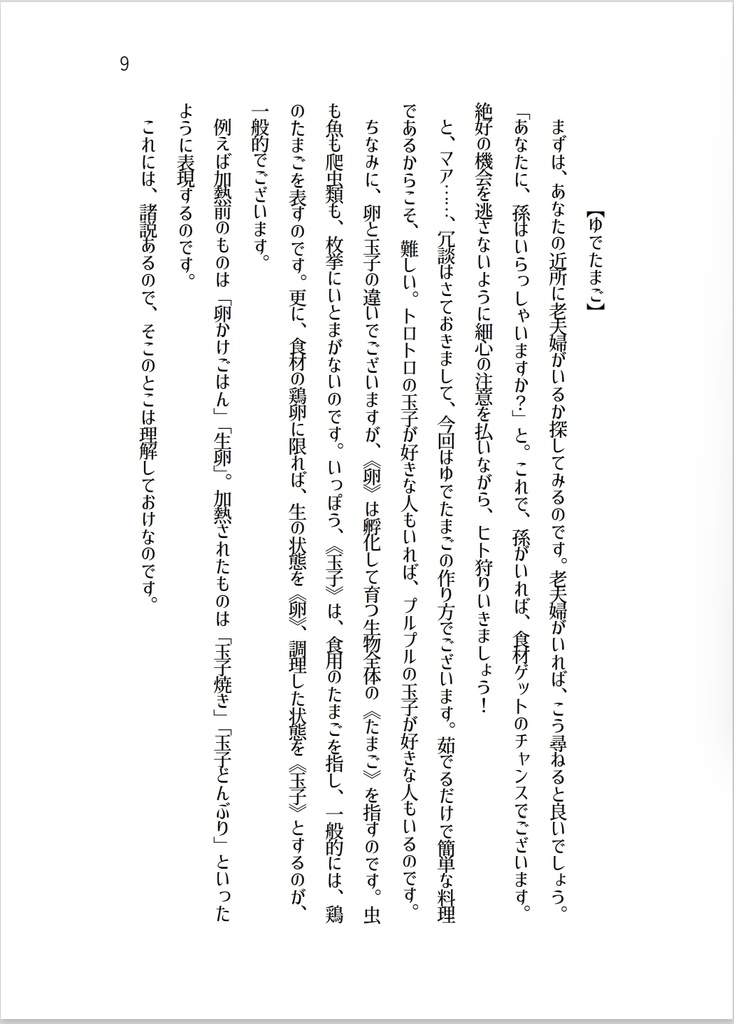 9
【ゆでたまご】
まずは、あなたの近所に老夫婦がいるか探してみるのです。老夫婦がいれば、こう尋ねると良いでしょう。
「あなたに、孫はいらっしゃいますか？」と。これで、孫がいれば、食材ゲットのチャンスでございます。
絶好の機会を逃さないように細心の注意を払いながら、ヒト狩りいきましょう！
と、マア……、冗談はさておきまして、今回はゆでたまごの作り方でございます。茹でるだけで簡単な料理
であるからこそ、難しい。トロトロの玉子が好きな人もいれば、プルプルの玉子が好きな人もいるのです。
ちなみに、卵と玉子の違いでございますが、《卵》は孵化して育つ生物全体の《たまご》を指すのです。虫
も魚も爬虫類も、枚挙にいとまがないのです。いっぽう、《玉子》は、食用のたまごを指し、一般的には、鶏
のたまごを表すのです。更に、食材の鶏卵に限れば、生の状態を《卵》、調理した状態を《玉子》とするのが、
一般的でございます。
例えば加熱前のものは「卵かけごはん」「生卵」。加熱されたものは「玉子焼き」「玉子どんぶり」といった
ように表現するのです。
これには、諸説あるので、そこのとこは理解しておけなのです。